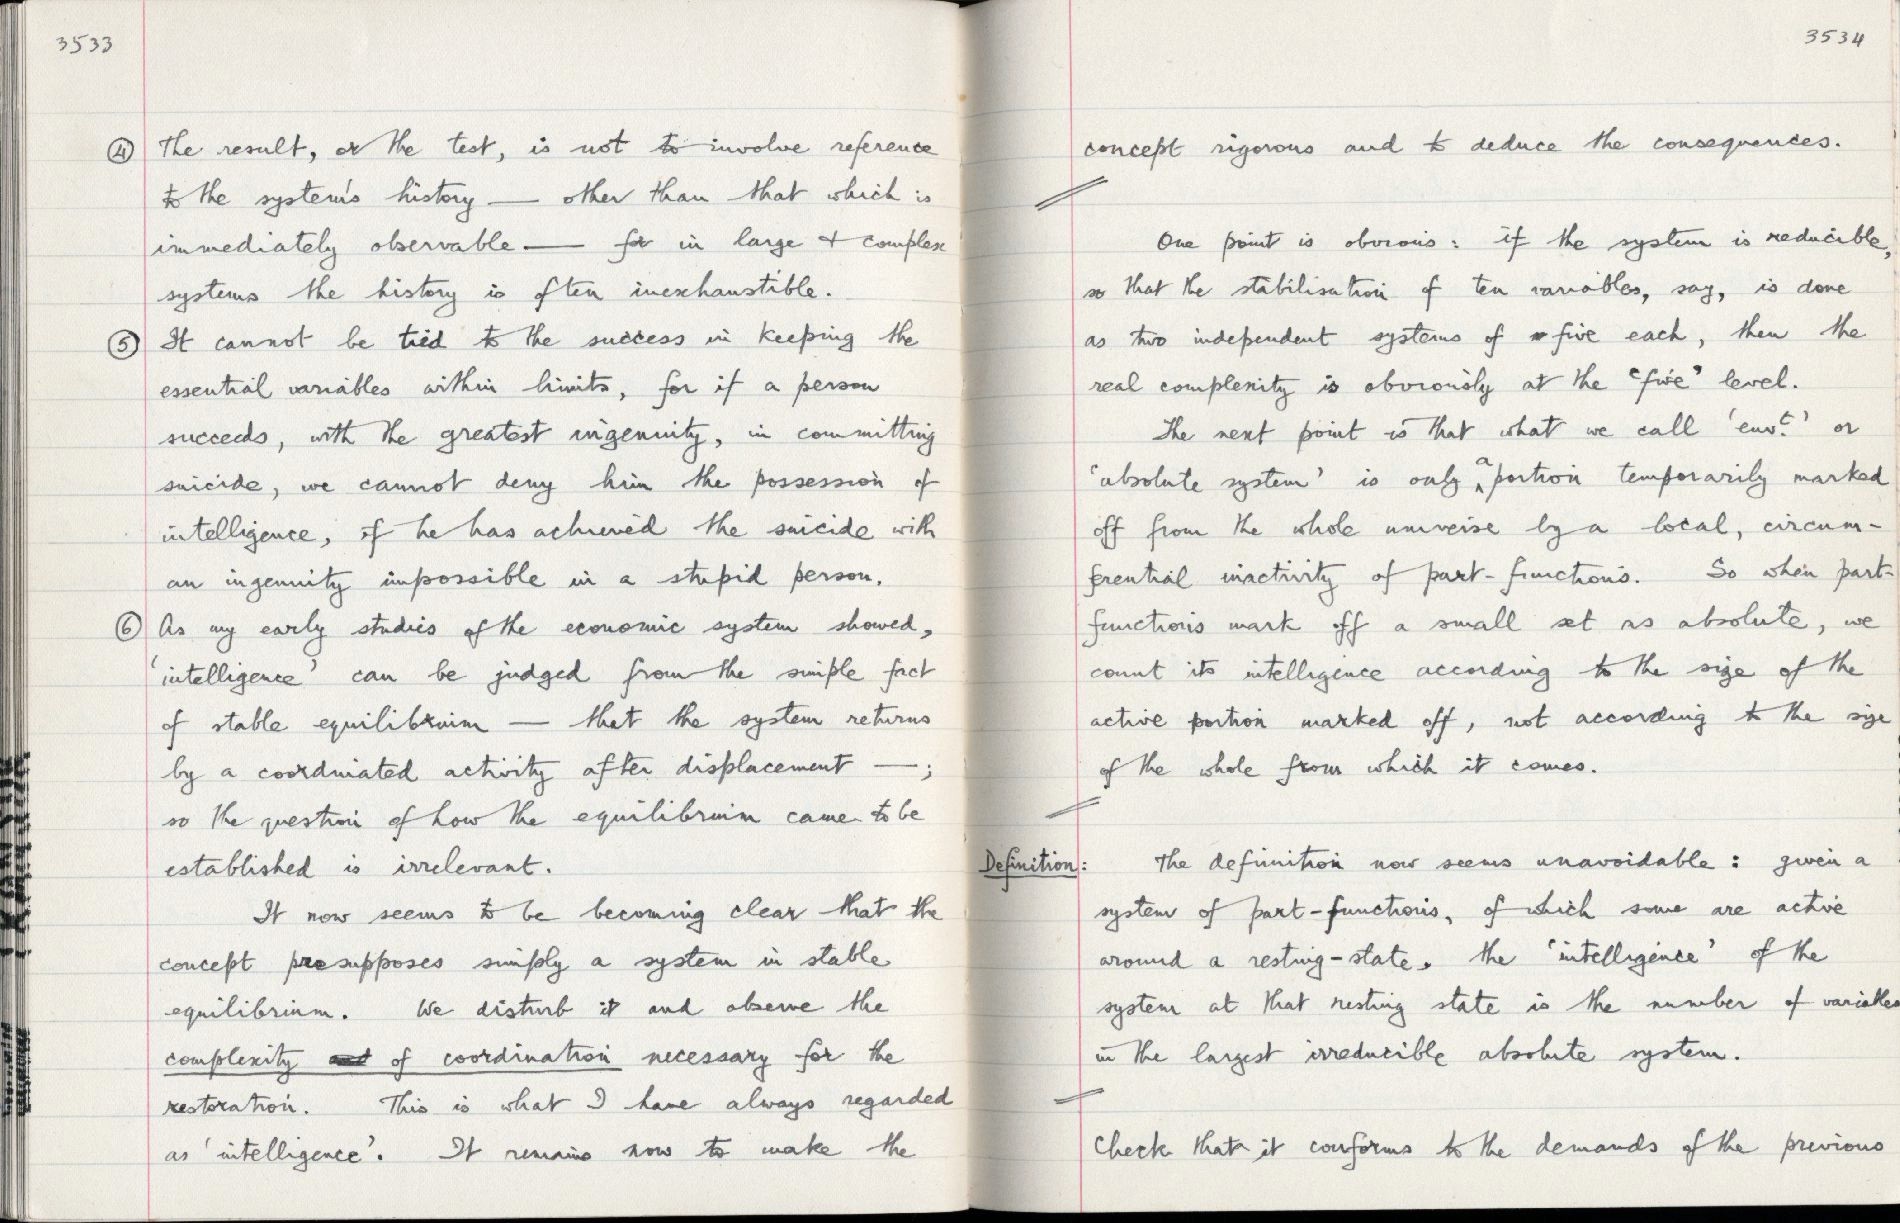 3533
④ The result, or the test, is not to involve reference
to the system's history — other than that which is
immediately observable — for in large & complex
systems the history is often inexhaustible.
⑤ It cannot be tied to the success in keeping the
essential variables within limits, for if a person
succeeds, with the greatest ingenuity, in committing
suicide, we cannot deny him the possession of
intelligence, if he has achieved the suicide with
an ingenuity impossible in a stupid person.
⑥ As my early studies of the economic system showed,
'intelligence' can be judged from the simple fact
of stable equilibrium — that the system returns
by a coordinated activity after displacement —;
so the question of how the equilibrium came to be
established is irrelevant.
It now seems to be becoming clear that the
concept presupposes simply a system in stable
equilibrium. We disturb it and observe the
complexity of coordination necessary for the
restoration. This is what I have always regarded
as 'intelligence'. It remains now to make the
3534
concept rigorous and to deduce the consequences.
One point is obvious: if the system is reducible,
so that the stabilisation of ten variables, say, is done
as two independent systems of five each, then the
real complexity is obviously at the "five" level.
The next point is that what we call 'envt.' or
'absolute system' is only a portion temporarily marked
off from the whole universe by a local, circum-
ferential inactivity of part-functions. So when part-
functions mark off a small set as absolute, we
count its intelligence according to the size of the
active portion marked off, not according to the size
of the whole from which it comes.
Definition: The definition now seems unavoidable: given a
system of part-functions, of which some are active
around a resting-state, the 'intelligence' of the
system at that resting state is the number of variables
in the largest irreducible absolute system.
Check that it conforms to the demands of the previous